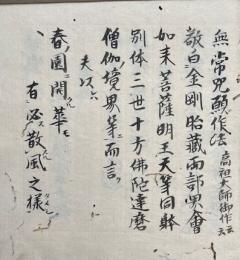 無常呪願作法 高祖大師御作云云
敬白金剛胎藏兩部界會
如来菩薩明王天等同躰
別体三世十方佛陀達磨
僧伽境界等ニ而言ク
夫以ハ
春ノ園ニ開華モ
有必ス散風之様